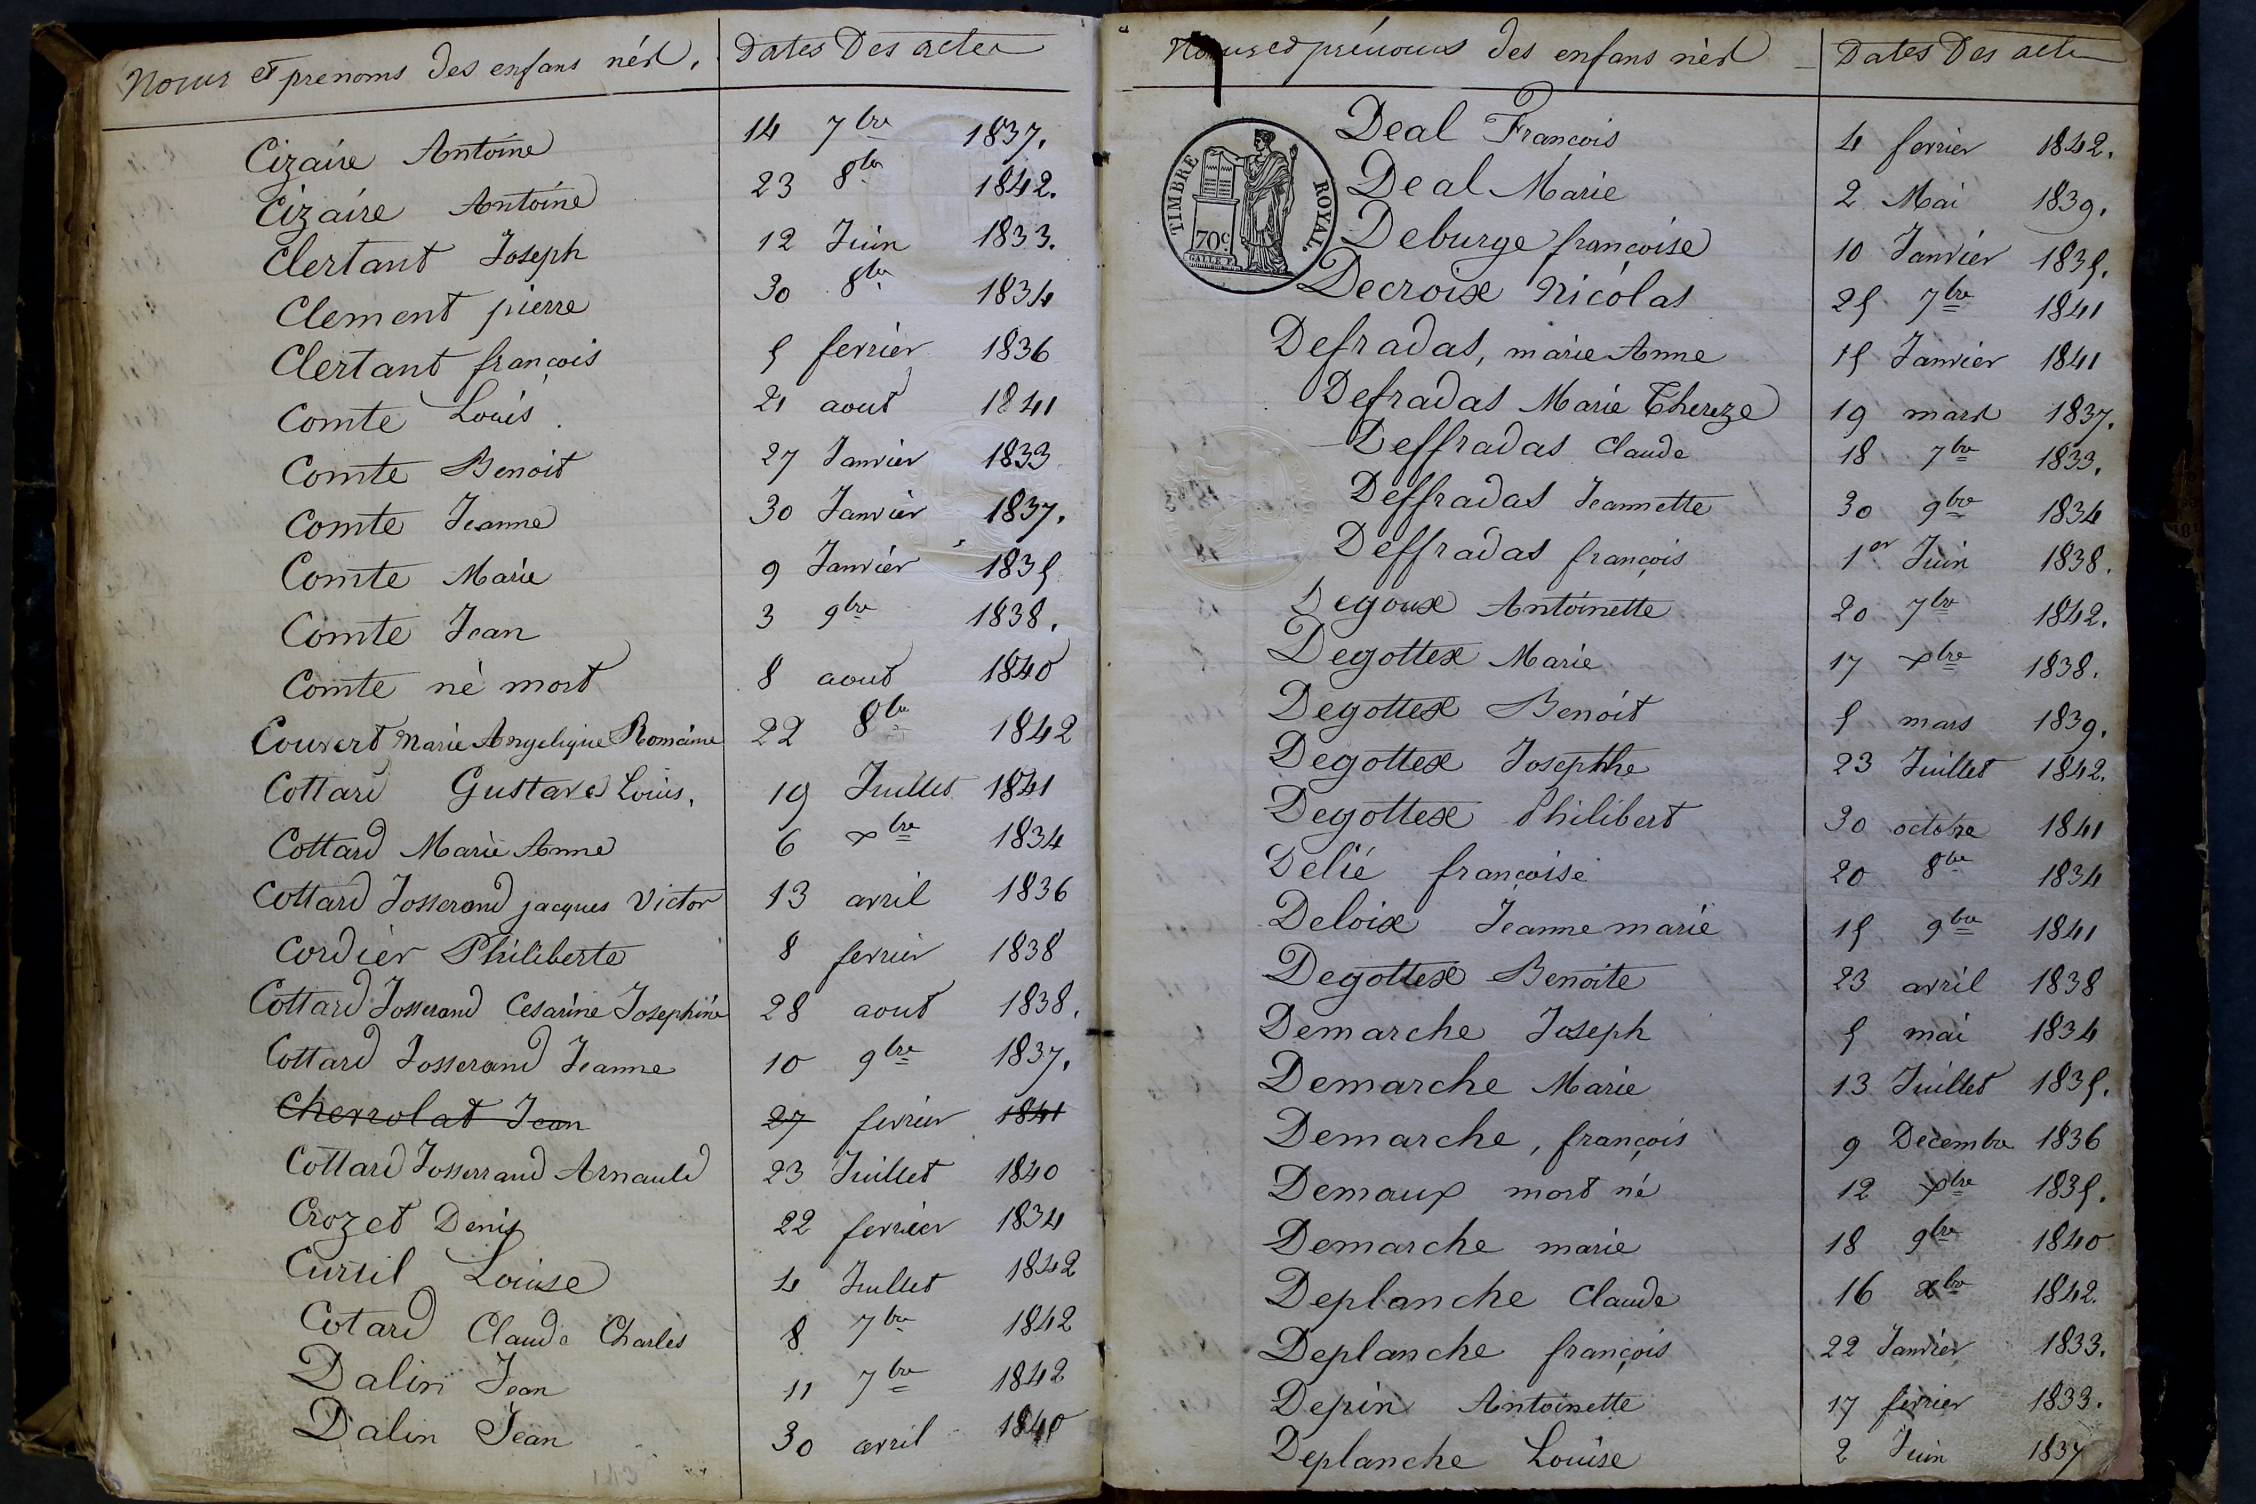 Noms et prenoms des enfans nés. Dates Des actes
Cizaire Antoine 14 7bre 1837.
Cizaire Antoine 23 8bre 1842.
Clertant Joseph 12 Juin 1833.
Clement pierre 30 8bre 1834
Clertant françois 5 fevrier 1836
Comte Louis 21 aout 1841
Comte Benoit 27 Janvier 1833
Comte Jeanne 30 Janvier 1837.
Comte Marie 9 Janvier 1835
Comte Jean 3 9bre 1838.
Comte né mort 8 aout 1840
Couvert Marie Angelique Romaine 22 8bre 1842
Cottard Gustave Louis. 19 Juillet 1841
Cottard Marie Anne 6 xbre 1834
Cottard Josserand jacques Victor 13 avril 1836
Cordier Philiberte 8 fevrier 1838
Cottard Josserand Cesarine Josephine 28 aout 1838.
Cottard Josserand Jeanne 10 9bre 1837.
Chevrolat Jean 27 fevrier 1841
Cottard Josserrand Arnauld 23 Juillet 1840
Crozet Denis 22 fevrier 1834
Curtil Louise 4 Juillet 1842
Cotard Claude Charles 8 7bre 1842
Dalin Jean 11 7bre 1842
Dalin Jean 30 avril 1840
Noms et prénoms des enfans nés Dates Des acte
TIMBRE ROYAL.
70c
GALLE F.
Deal Francois 4 fevrier 1842.
Deal Marie 2 Mai 1839.
Deburge francoise 10 Janvier 1835.
Decroix Nicolas 25 7bre 1841
Defradas, marie Anne 15 Janvier 1841
Defradas Marie Thereze 19 mars 1837.
Deffradas Claude 18 7bre 1833.
Deffradas Jeannette 30 9bre 1834
Deffradas françois 1er Juin 1838.
Degoux Antoinette 20 7bre 1842.
Degottex Marie 17 xbre 1838.
Degottex Benoit 5 mars 1839.
Degottex Josephthe 23 Juillet 1842.
Degottex Philibert 30 octobre 1841
Delié françoise 20 8bre 1834
Deloix Jeanne marie 15 9bre 1841
Degottex Benoite 23 avril 1838
Demarche Joseph 5 mai 1834
Demarche Marie 13 Juillet 1835.
Demarche, françois 9 Decembre 1836
Demaux mort né 12 xbre 1835.
Demarche marie 18 9bre 1840
Deplanche Claude 16 xbre 1842.
Deplanche françois 22 Janvier 1833.
Depin Antoinette 17 fevrier 1833.
Deplanche Louise 2 Juin 1837